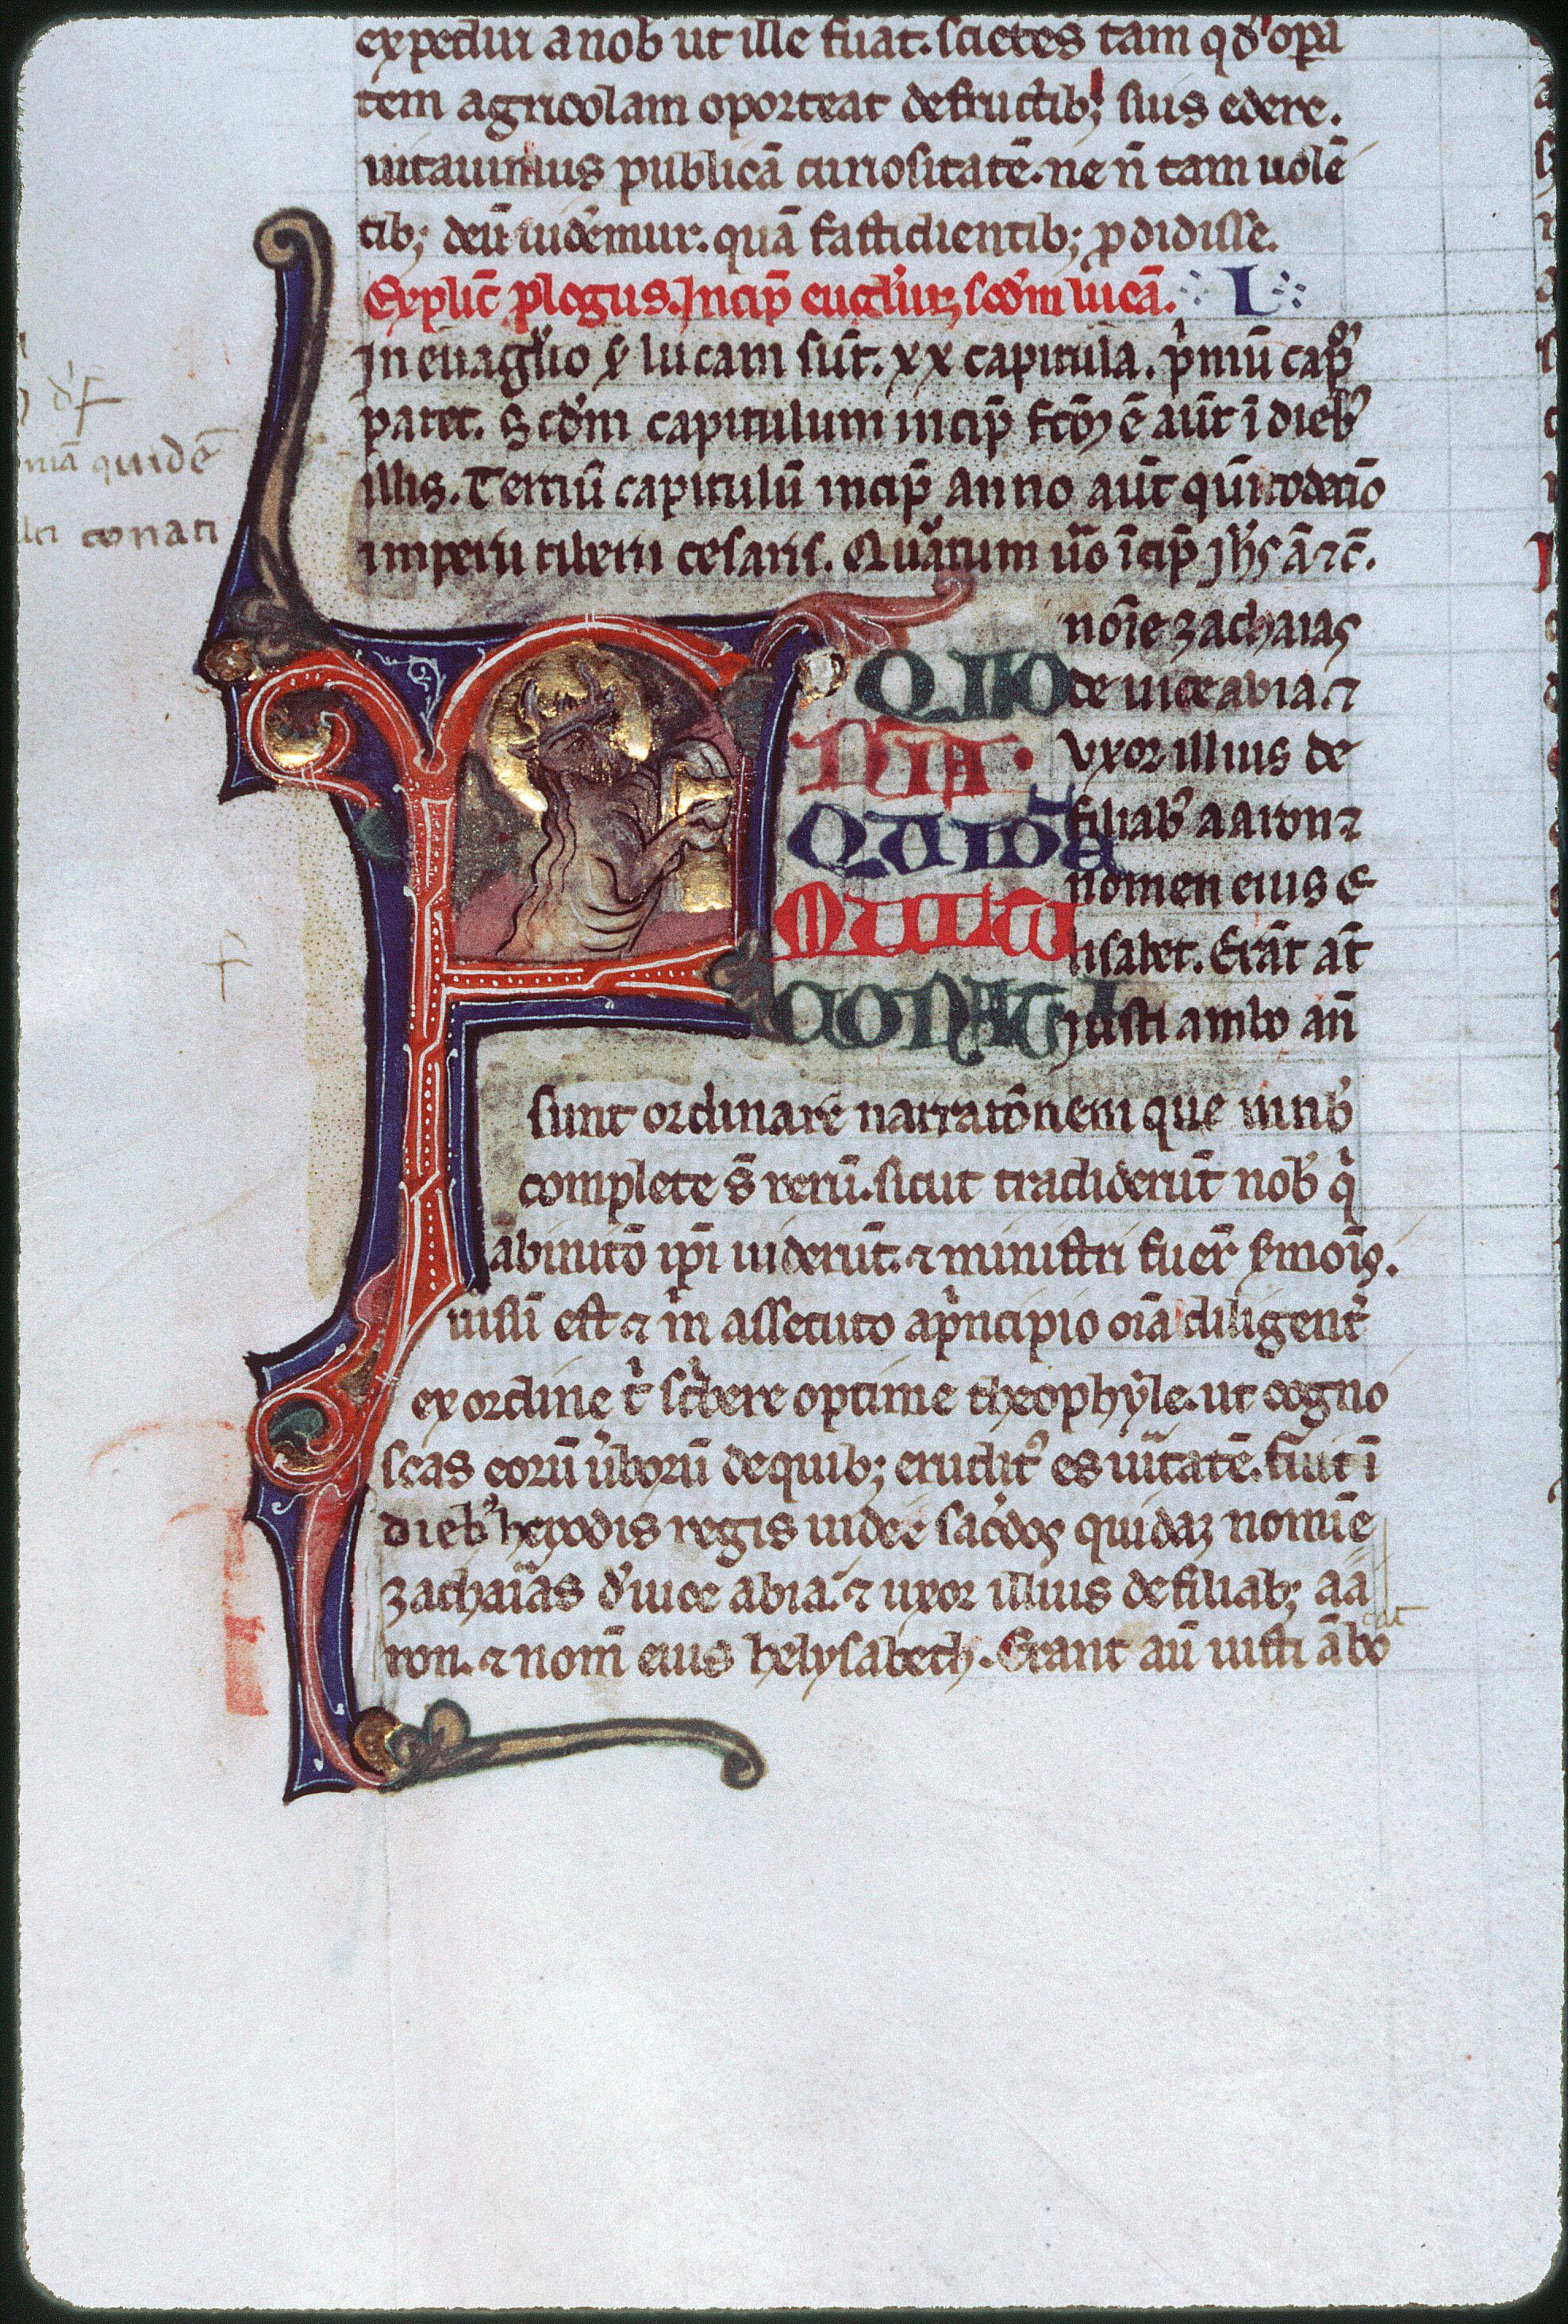 expediui a nob ut ille fuat. scietes tam qđ opa
tem agricolam oporteat de fructib; suis edere.
uitauimus publicā curiositatē. ne ñ tam uolē
tib; deū uidemur. quā fastidientib; pdidisse.
Explic̄ plogus. Incip̄ euḡliuꝫ scđm lucā. L
In euāglio ẜ lucam sūt. xx capitula. pͥmū capꝰ
patet. Scđm capitulum incip̄ fcm̄ ē aūt ī diebꝰ
illis. Tertiū capitulū incip̄ anno aūt qūitodecīo
imperii tiberii cesaris. Quartum ūo īcip̄ Jhs ā ⁊ c̄.
noīe zacharias
QUO
de uice abia ⁊
NIA.
vxor illius de
QUIDĒ
filiabꝰ aaron ⁊
nomen eius e
MULTI
lisabet. Erāt āt
CONATI
iusti ambo añ
sunt ordinare narratōnem que in nobꝰ
complete s̄ rerū. sicut tradiderūt nobꝰ qͥ
ab initō ip̄i uiderūt. ⁊ ministri fuer̄ ẜmoīs.
uisū est ⁊ m̄ assecuto apͥncipio oīa diligent᷑
ex ordine tͥ scͥbere optime theophyle. ut cogno
scas eorū ūborū de quib; eruditꝰ es ūitatē. fuit ī
diebꝰ herodis regis iudee sacdos quidaꝫ nomīe
zacharias d̕ uice abia. ⁊ uxor illius de filiab; aa
ron. ⁊ nom̄ eius helysabeth. Erant aū iusti ābo
niā quidē
lti conati
f